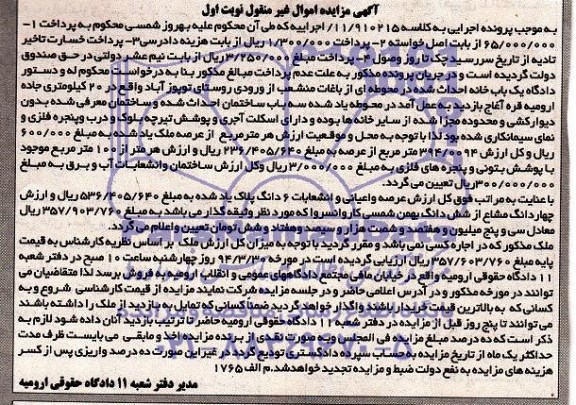 آگهی مزایده اموال غیر منقول نوبت اول
به موجب پرونده اجرایی به کلاسه ۱۱/۹۱۰۲۱۵ اجراییه که طی آن محکوم علیه بهروز شمسی محکوم به پرداخت ۱-
۶۵/۰۰۰/۰۰۰ از بابت اصل خواسته ۲- پرداخت ۱/۳۰۰/۰۰۰ ریال از بابت هزینه دادرسی ۳- پرداخت خسارت تاخیر
تادیه از تاریخ سررسید چک تا روز وصول ۴- پرداخت مبلغ ۳/۲۵۰/۰۰۰ ریال از بابت نیم عشر دولتی در حق صندوق
دولت گردیده است و در جریان پرونده مذکور به علت عدم پرداخت مبالغ مذکور بنا به درخواست محکوم له و دستور
دادگاه یک باب خانه احداث شده در محوطه ای از باغات منشعب از ورودی روستای توپوز آباد واقع در ۲۰ کیلومتری جاده
ارومیه قره آغاج بازدید به عمل آمد در محوطه یاد شده سه باب ساختمان احداث شده و ساختمان معرفی شده بدون
دیوارکشی و محدوده مجزا شده از سایر خانه ها بوده و دارای اسکلت آجری و پوشش تیرچه بلوک و درب و پنجره فلزی و
نمای سیمانکاری شده بود لذا با توجه به محل و موقعیت ارزش هر مترمربع از عرصه ملک یاد شده به مبلغ ۶۰۰/۰۰۰
ریال و کل ارزش ۳۹۴/۰۰۹۴ متر مربع از عرصه به مبلغ ۲۳۶/۴۰۵/۶۴۰ ریال و ارزش هر متر از ۱۰۰ متر مربع موجود
با پوشش بتونی و پنجره های فلزی به مبلغ ۳/۰۰۰/۰۰۰ ریال وکل ارزش ساختمان وانشعابات آب و برق به مبلغ
۳۰۰/۰۰۰/۰۰۰ ریال تعیین می گردد.
با عنایت به مراتب فوق کل ارزش عرصه واعیانی و انشعابات ۶ دانگ پلاک یاد شده به مبلغ ۵۳۶/۴۰۵/۶۴۰ ریال و ارزش
چهاردانگ مشاع از شش دانگ بهمن شمسی کاروانسرا که مورد نظر وثیقه گذار می باشد به مبلغ ۳۵۷/۹۰۳/۷۶۰ ریال
معادل سی و پنج میلیون و هفتصد و شصت هزار و سیصد و هفتاد و شش تومان تعیین و اعلام می گردد.
ملک مذکور که در اجاره کسی نمی باشد و مقرر گردید با توجه به میزان کل ارزش ملک بر اساس نظریه کارشناس به قیمت
پایه مبلغ ۳۵۷/۶۰۳/۷۶۰ ریال ارزیابی گردیده است در مورخه ۹۴/۳/۲۰ روز چهارشنبه ساعت ۱۰ صبح در دفتر شعبه
۱۱ دادگاه حقوقی ارومیه واقع در خیابان مافی مجتمع دادگاههای عمومی و انقلاب ارومیه به فروش برسد لذا متقاضیان می
توانند در مورخه مذکور و در آدرس اعلامی حاضر و در جلسه مزایده شرکت نمایند مزایده از قیمت کارشناسی شروع و به
کسانی که به بالاترین قیمت خریدار باشند واگذار خواهد گردید ضمناً کسانی که تمایل به بازدید از ملک را داشته باشند
می توانند تا پنج روز قبل از مزایده در دفتر شعبه ۱۱ دادگاه حقوقی ارومیه حاضر تا ترتیب بازدید آنان داده شود لازم به
ذکر است که ده درصد مبلغ مزایده فی المجلس و به صورت نقدی از برنده مزایده اخذ و مابقی می بایست ظرف مدت
حداکثر یک ماه از تاریخ مزایده به حساب سپرده دادگستری تودیع گردد در غیر این صورت ده درصد واریزی پس از کسر
هزینه های مزایده به نفع دولت ضبط و مزایده تجدید خواهد شد.م الف ۱۷۶۵
مدیر دفتر شعبه ۱۱ دادگاه حقوقی ارومیه